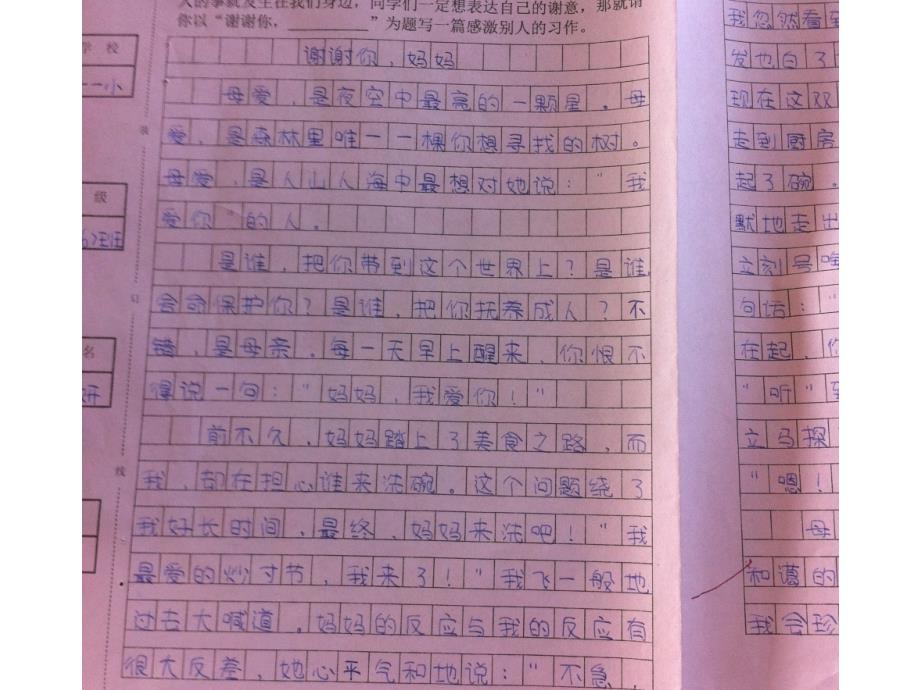 人的事就发生在我们身边，同学们一定想表达自己的谢意，那就请
你以“谢谢你，__________”为题写一篇感激别人的习作。
谢谢你，妈妈
母爱，是夜空中最亮的一颗星。母
爱，是森林里唯一一棵你想寻找的树。
母爱，是人山人海中最想对她说：“我
爱你”的人。
是谁，把你带到这个世界上？是谁，
舍命保护你？是谁，把你抚养成人？不
错，是母亲。每一天早上醒来，你恨不
得说一句：“妈妈，我爱你！”
前不久，妈妈踏上了美食之路，而
我，却在担心谁来洗碗。这个问题绕了
我好长时间，最终，妈妈来洗吧！“我
最爱的炒寸节，我来了！”我飞一般地
过去大喊道。妈妈的反应与我的反应有
很大反差，她心平气和地说：“不急，
学校
一小
级
班
名
妍
装
订
线
我忽然看到
发也白了
现在这双
走到厨房
起了碗。
默地走出
立刻号
句话：“
在起，你
“听”到
立马探
“嗯！
母
和蔼的
我会珍